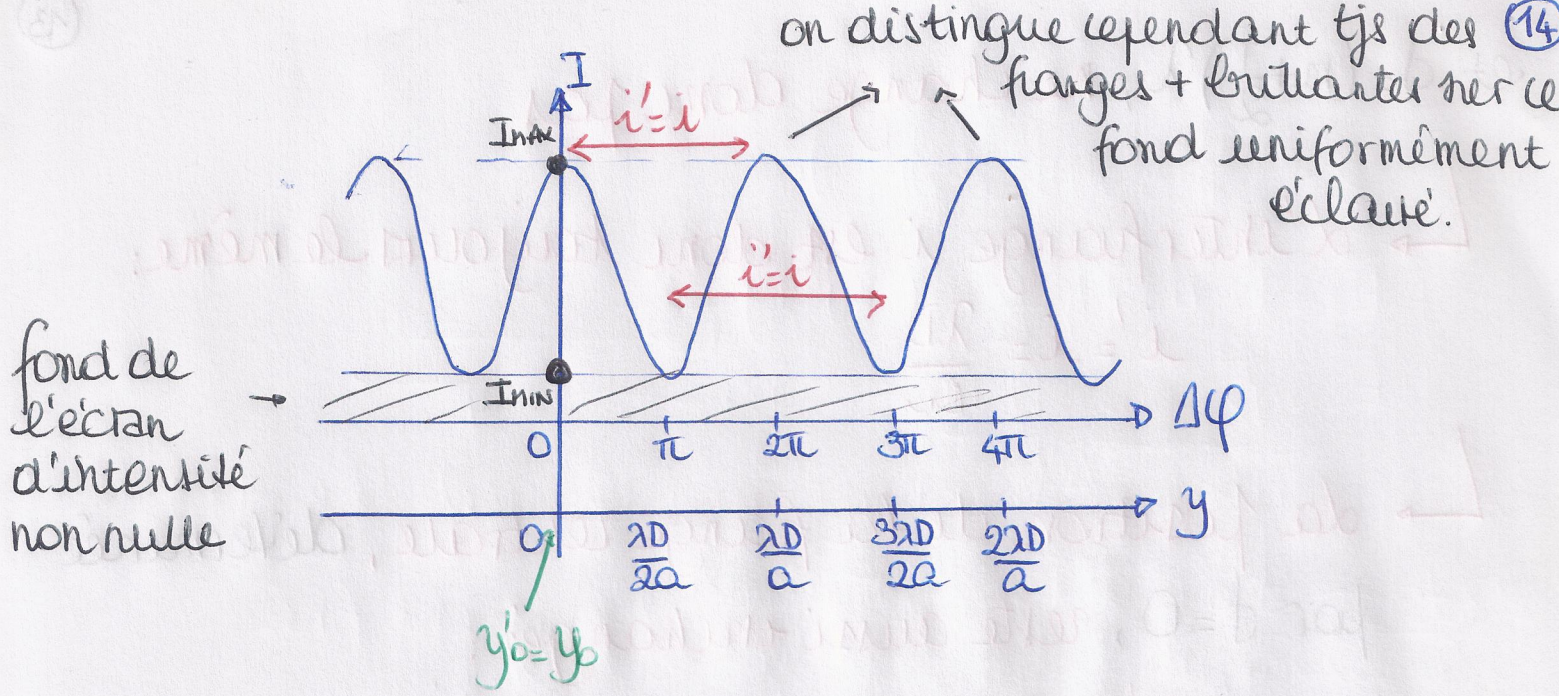 on distingue cependant tjs des 14
franges + brillantes sur ce
fond uniformément
éclairé.
I
IMAX
i'=i
i'=i
fond de
l'écran
d'intensité
non nulle
IMIN
Δφ
0 π 2π 3π 4π
y
0 λD/2a λD/a 3λD/2a 2λD/a
y'0 = y0